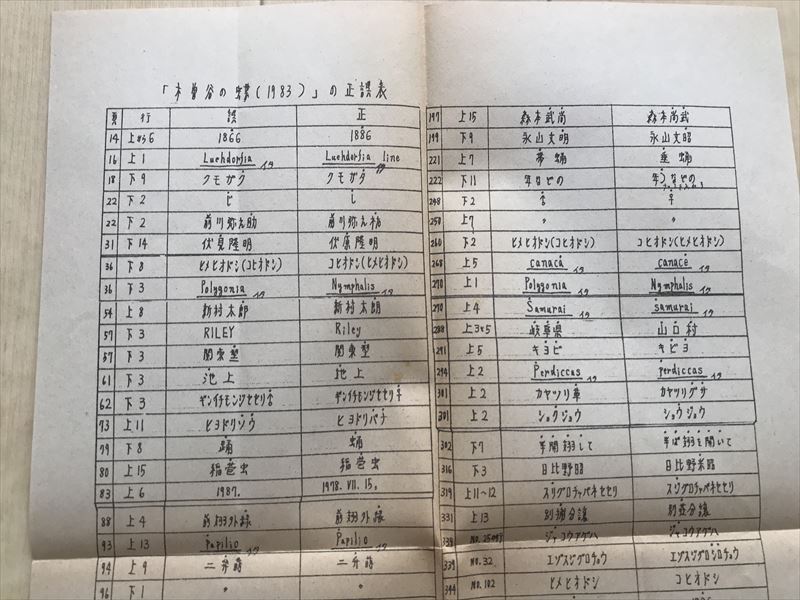 「木曽谷の蝶(1983)」の正誤表
頁 行 誤 正
14 上から6 1866 1886
16 上1 Luehdorfia イタ Luehdorfia イタ line
18 下9 クモガタ クモガタ
22 下2 じ し
22 下2 前川弥之助 前川弥右
31 下14 伏見隆明 伏原隆明
36 下8 ヒメヒオドシ(コヒオドシ) コヒオドシ(ヒメヒオドシ)
36 下3 Polygonia イタ Nymphalis イタ
54 上8 新村太郎 新村太朗
57 下3 RILEY Riley
57 下3 関東型 関東型
61 下3 池上 池上
62 下3 ギンイチモンジセセリ♂ ギンイチモンジセセリ♀
73 上11 ヒヨドリソウ ヒヨドリバナ
79 下8 踊 蛹
80 上15 稲苞虫 稲苞虫
83 上6 1987. 1978.VII.15,
88 上4 前翅外縁 前翅外縁
93 上13 Papilio イタ Papilio イタ
94 上9 二弁蒔 二弁蒔
96 下1 〃 〃
197 上15 森本武尚 森本尚武
199 下9 永山文明 永山文昭
221 上7 帯蛹 垂蛹
222 下11 年などの
248 下2 ♂ ♀
250 上7 〃 〃
260 下2 ヒメヒオドシ(コヒオドシ) コヒオドシ(ヒメヒオドシ)
268 上5 canaca イタ canace イタ
270 上1 Polygonia イタ Nymphalis イタ
270 上4 Samurai イタ samurai イタ
288 上3と5 岐阜県 山口村
291 上5 キヨビ キビヨ
294 上2 Perdiccas イタ perdiccas イタ
301 上2 カヤツリ草 カヤツリグサ
301 上2 ショウジョウ ショウジョウ
302 下7 半開翅して 半ば翅を開いて
316 下3 日比野昭 日比野米昭
319 上11〜12 スリグロチャバネセセリ スジグロチャバネセセリ
331 上13 別撮分譲 別荘分譲
338 ジャコウアゲハ ジャコウアゲハ
339 NO.32 エゾスジグロチョウ エゾスジグロシロチョウ
344 NO.102 ヒメヒオドシ コヒオドシ